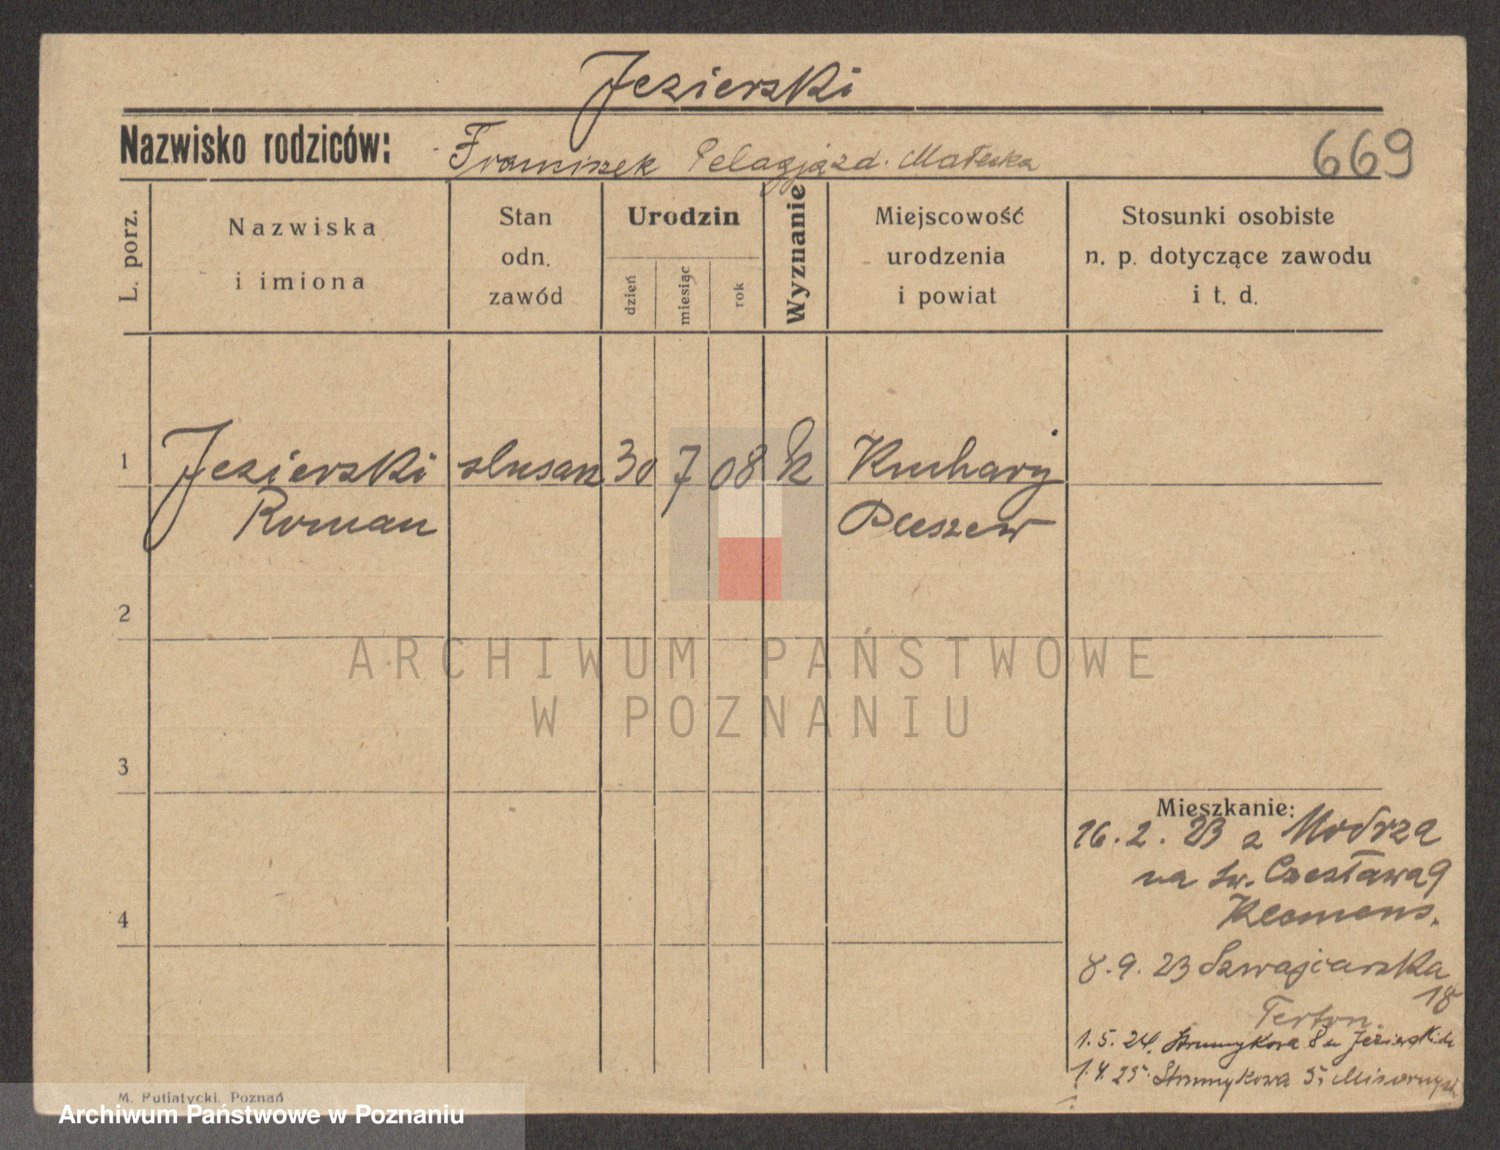 Jezierski
Nazwisko rodziców: Franciszek Pelagja zd. Małecka
669
L. porz.
Nazwiska i imiona
Stan odn. zawód
Urodzin
dzień
miesiąc
rok
Wyznanie
Miejscowość urodzenia i powiat
Stosunki osobiste n. p. dotyczące zawodu i t. d.
1 Jezierski ślusarz 30 7 08 k Kuchary
Roman Pleszew
2
3
4
ARCHIWUM PAŃSTWOWE
W POZNANIU
Mieszkanie:
16. 2. 23 z Modrza
na św. Czesława 9
Klemens.
8. 9. 23 Szwajcarska
18
1. 5. 24. Strumykowa 8 u
1. 4. 25. Strumykowa 5
M. Putiatycki, Poznań
Archiwum Państwowe w Poznaniu